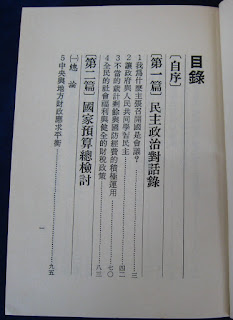 目錄
〔自序〕
〔第一篇〕民主政治對話錄
1 我為什麼主張召開國是會議?……三
2 讓政府與人民共同學習民主……四二
3 不當的歲計賸餘與國防經費的積極運用……七〇
4 全民的社會福利與健全的財稅政策……八三
〔第二篇〕國家預算總檢討
〔一〕總論
5 中央與地方財政應求平衡……九五
一